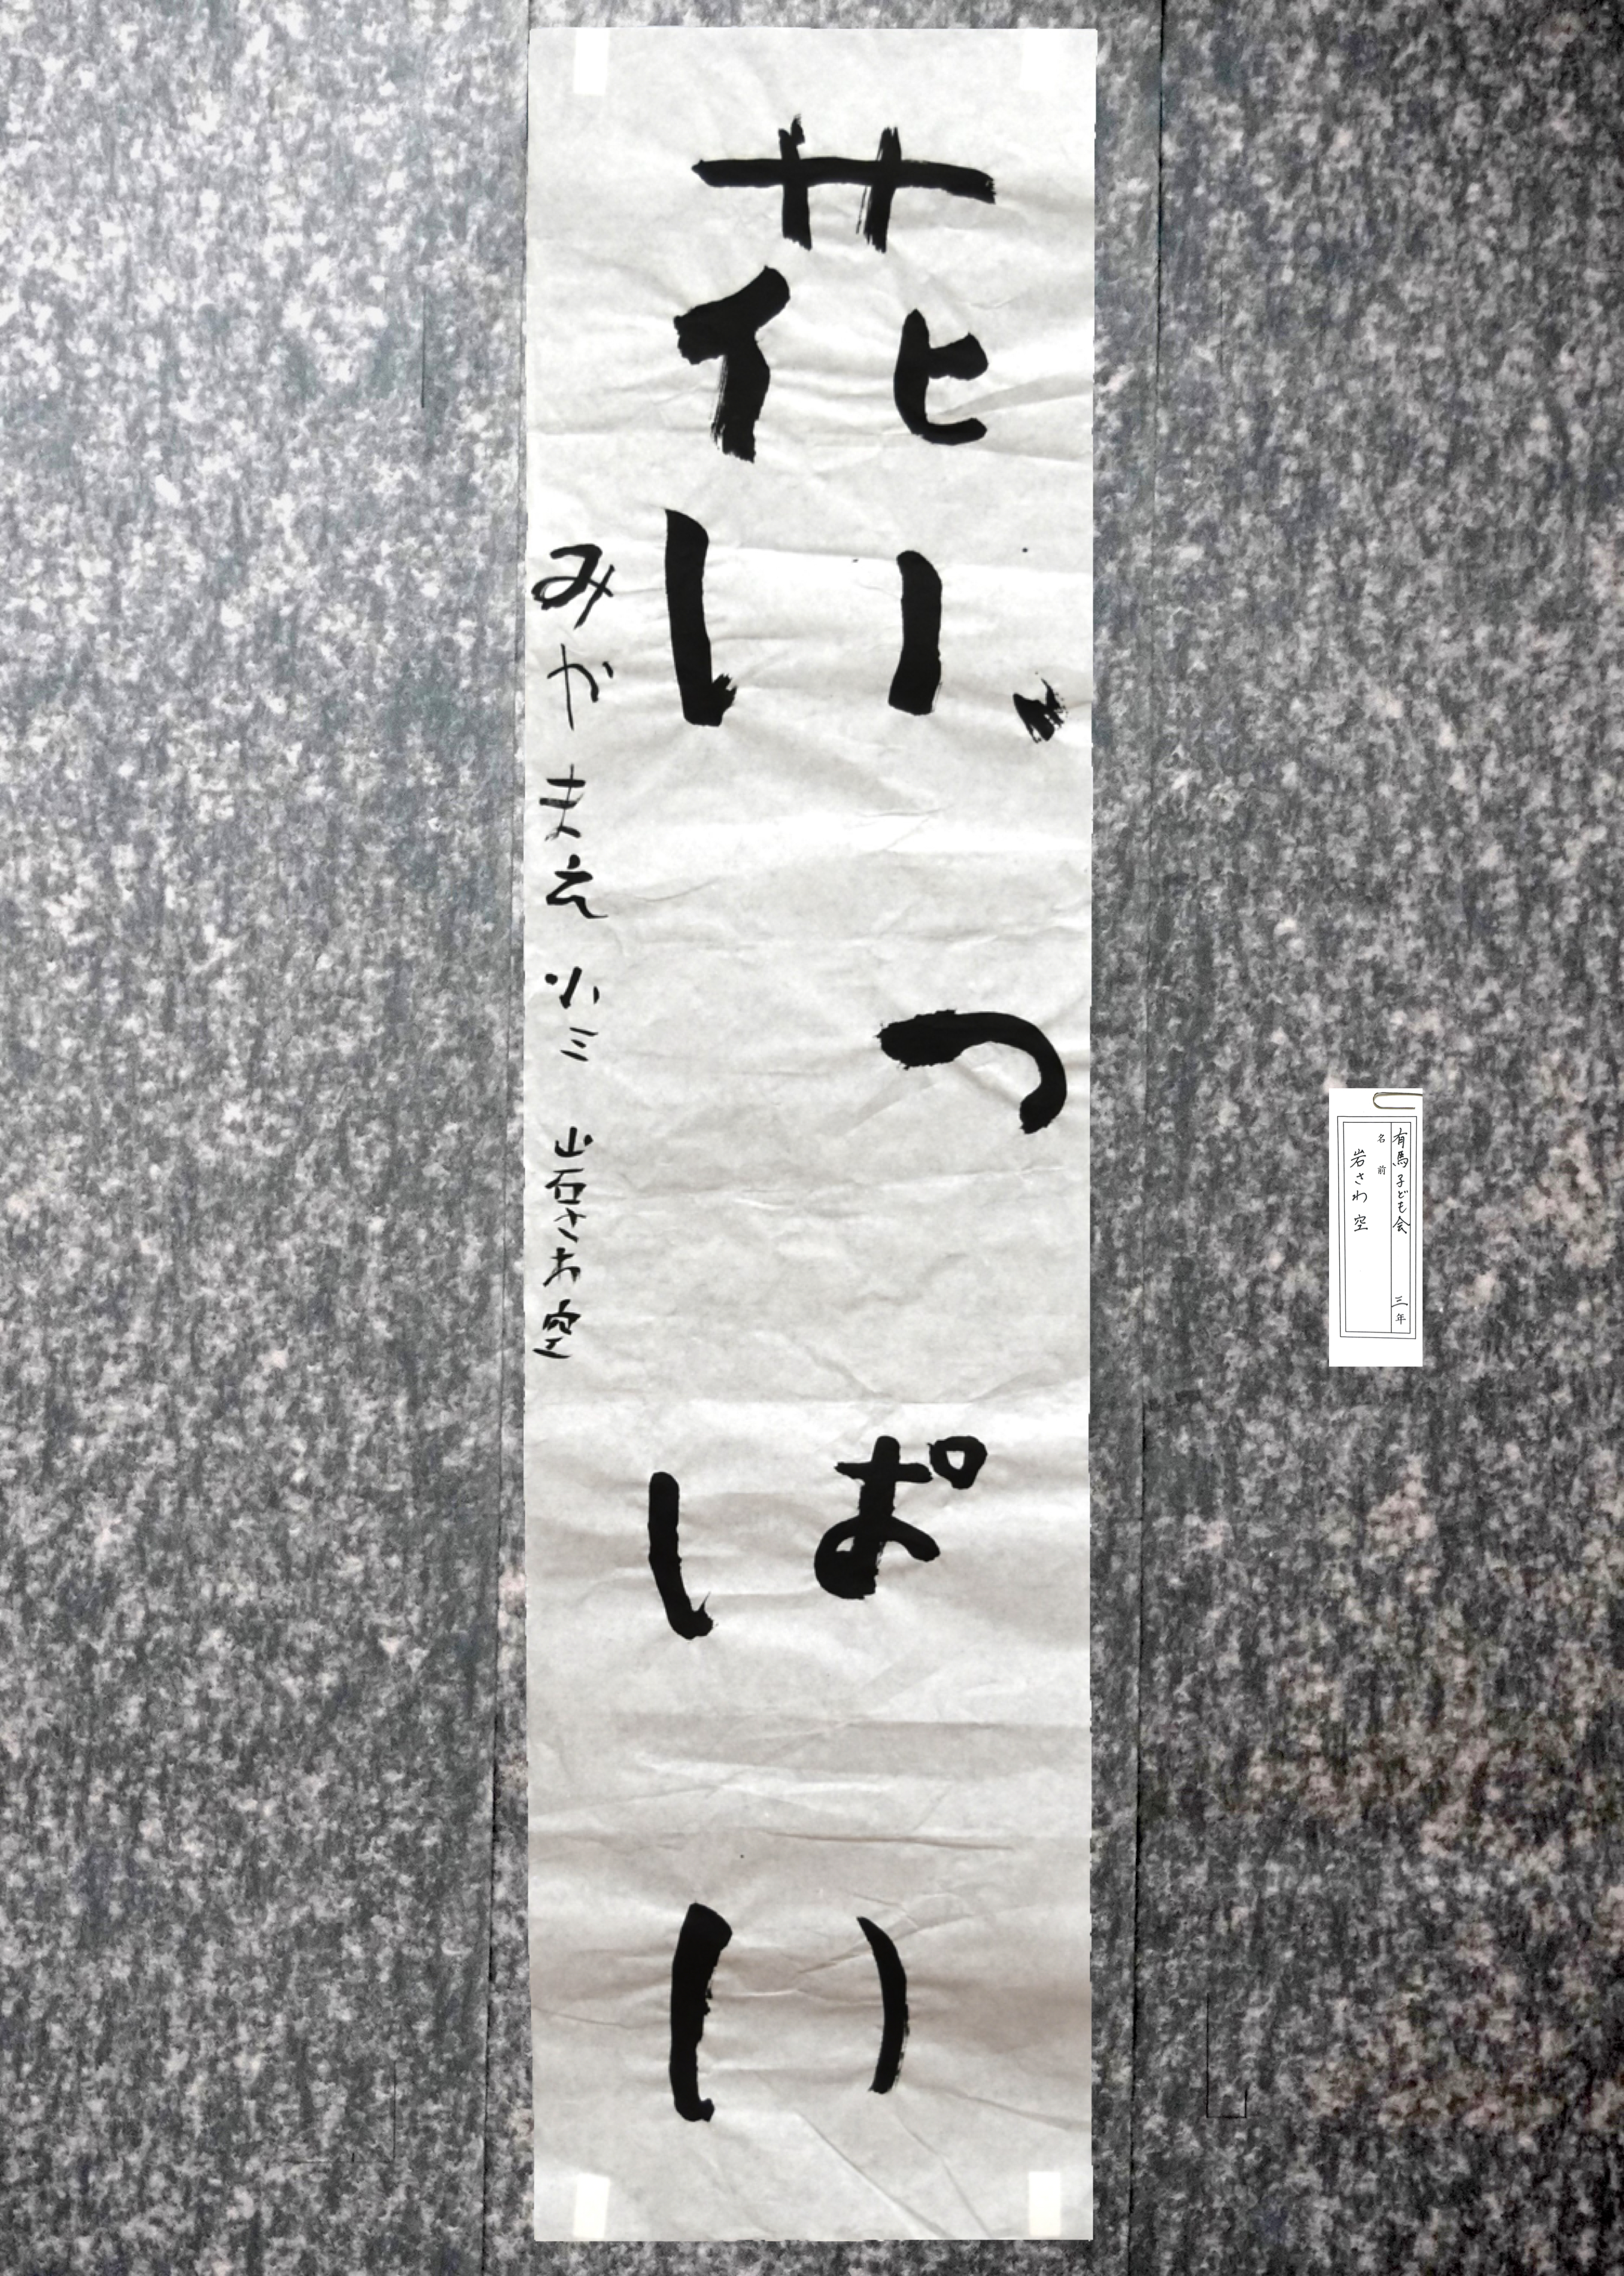 花いっぱい
みかまえ小三 岩さわ空
有馬子ども会 三年
名前
岩さわ 空